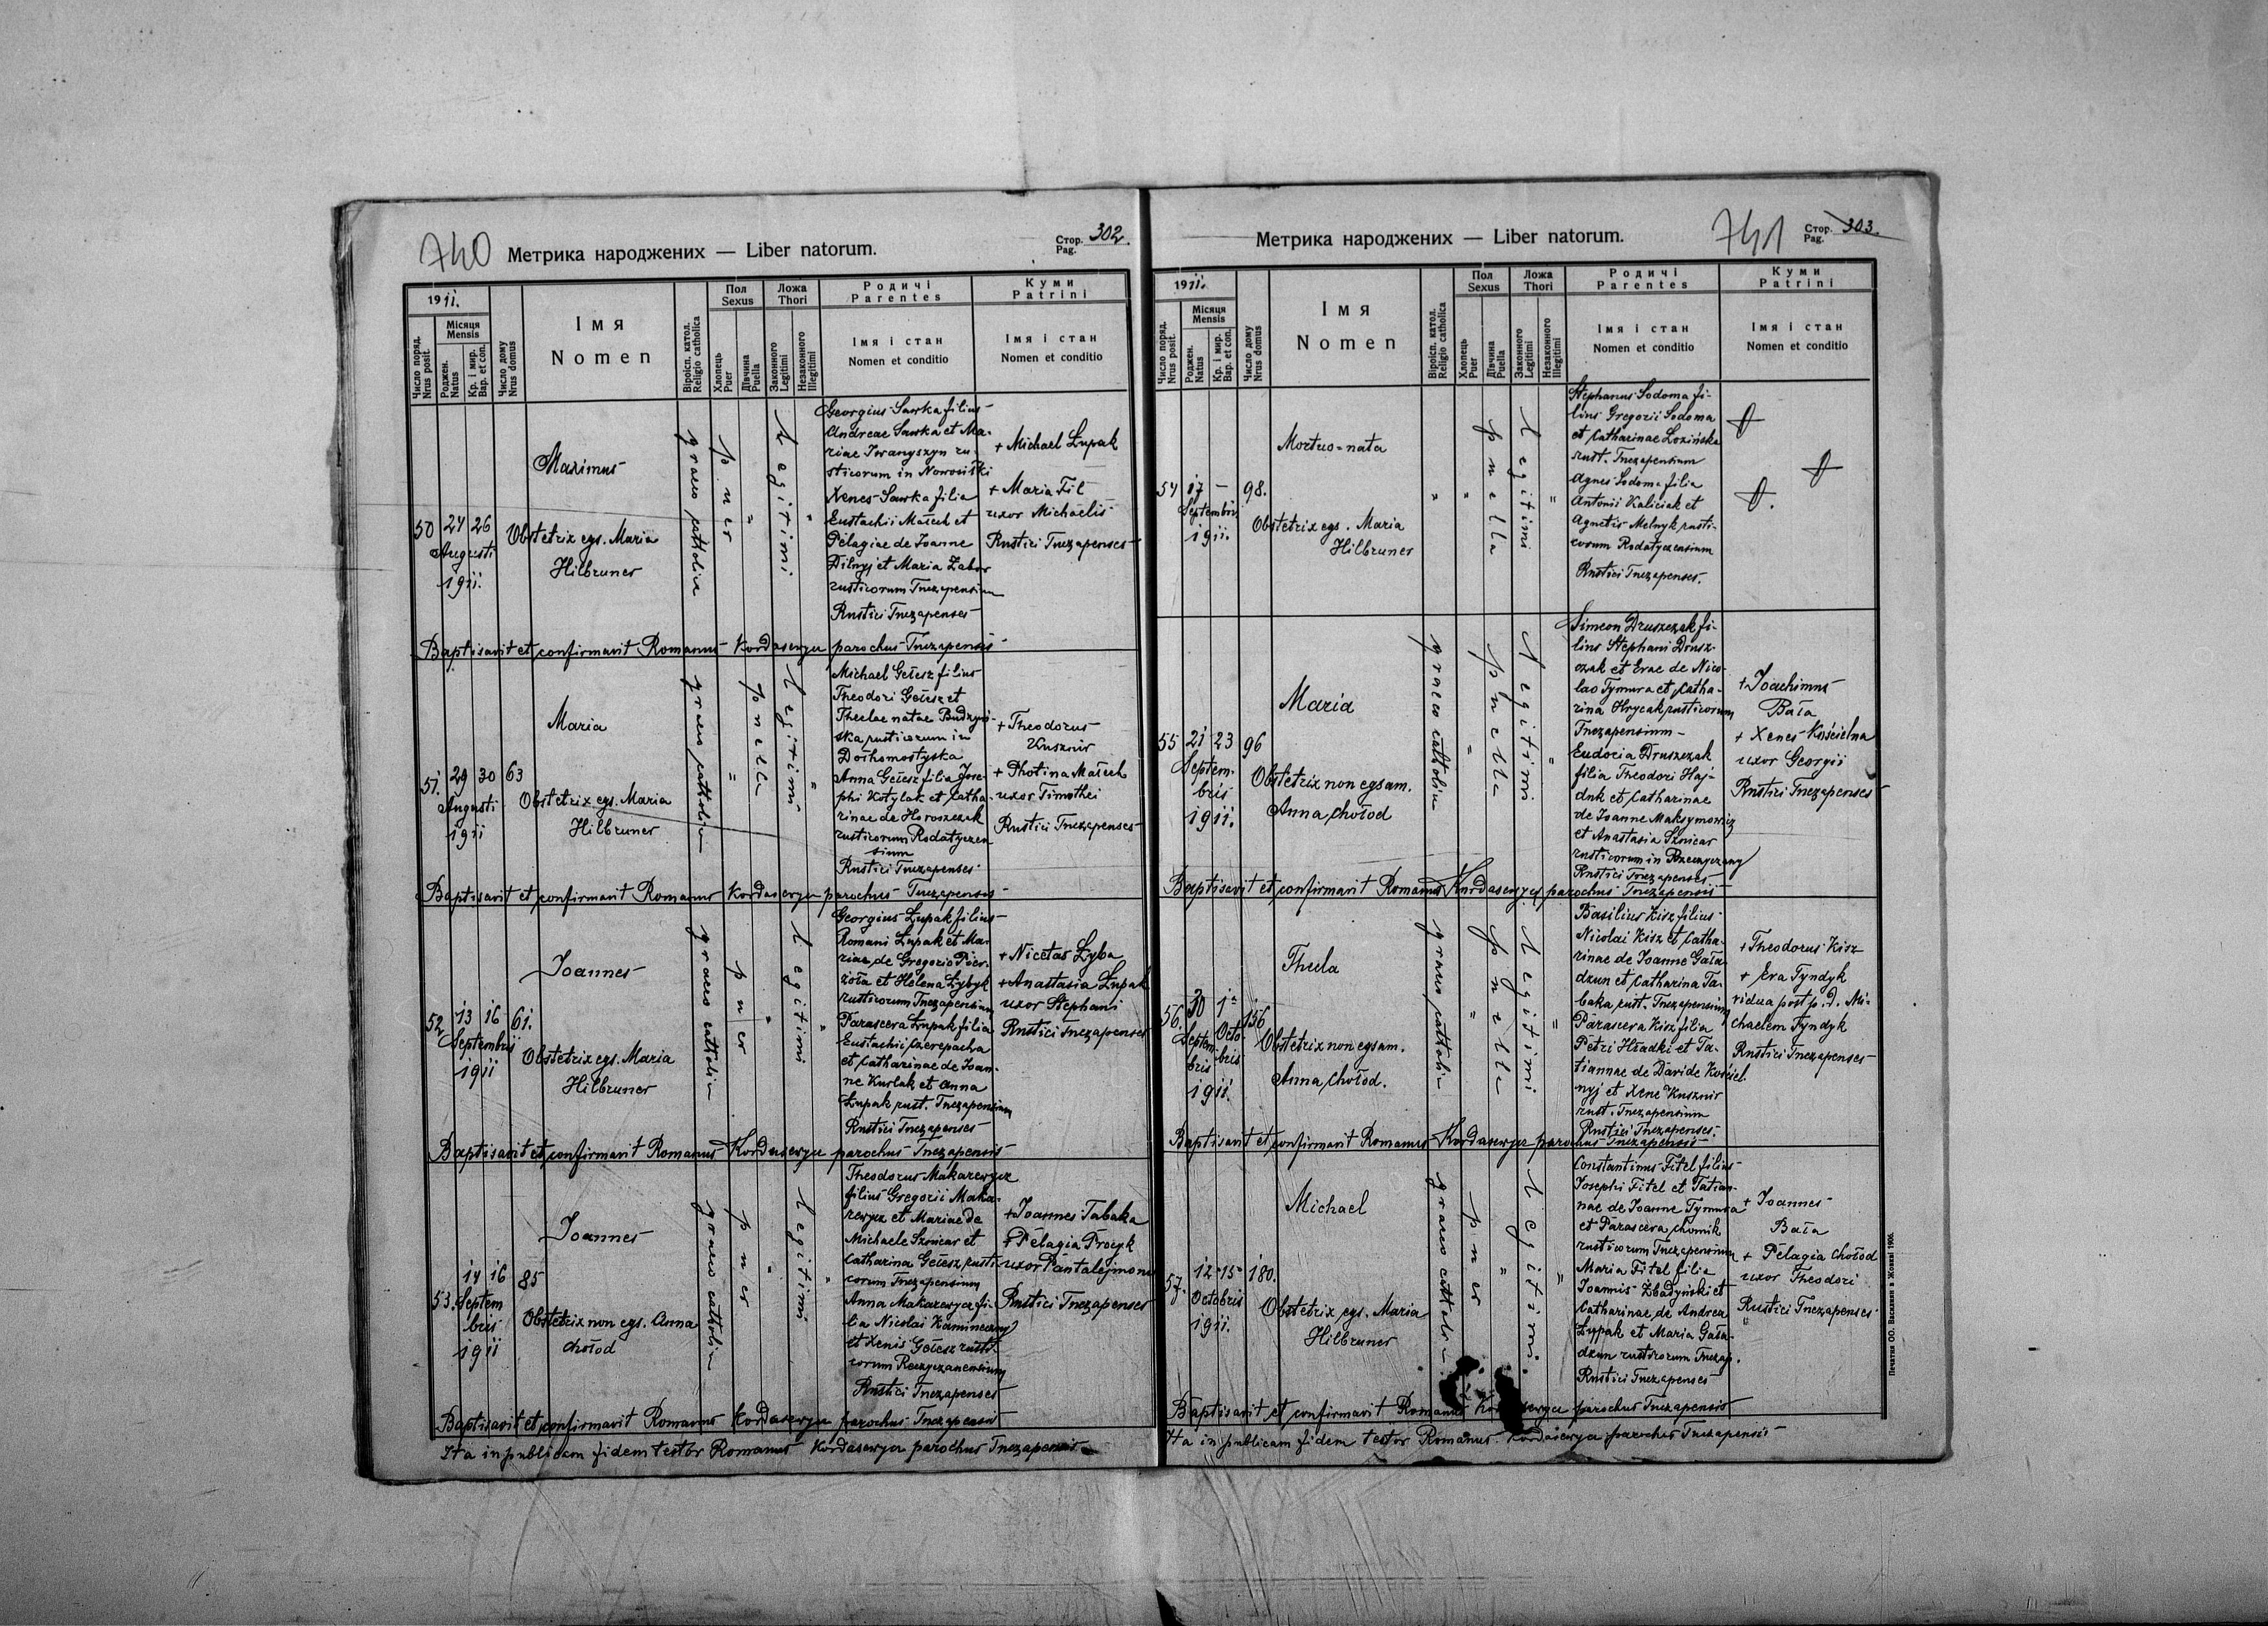 740 Метрика народжених — Liber natorum. Стор. Pag. 302.
1911.
Місяця Mensis
Число поряд. Nrus posit.
Роджен. Natus
Кр. і мир. Bap. et con.
Число дому Nrus domus
Імя Nomen
Віроісп. катол. Religio catholica
Пол Sexus
Хлопець Puer
Дівчина Puella
Ложа Thori
Законного Legitimi
Незаконного Illegitimi
Родичі Parentes
Імя і стан Nomen et conditio
Куми Patrini
Імя і стан Nomen et conditio
50 24 26
Augusti
1911.
Maximus
Obstetrix egs. Maria
Hilbruner
graeco catholica
puer
"
legitimi
"
Georgius Sawka filius
Andreae Sawka et Ma-
riae Iwanyszyn ru-
sticorum in Nowosiłki
Xenes Sawka filia
Eustachii Małech et
Pelagiae de Joanne
Dilnyj et Maria Zabor
rusticorum Tuczapensium
Rustici Tuczapenses
+ Michael Łupak
+ Maria Fil
uxor Michaelis
Rustici Tuczapenses
Baptisavit et confirmavit Romanus Kordasewycz parochus Tuczapensis
51. 29 30 63
Augusti
1911
Maria
Obstetrix egs. Maria
Hilbruner
graeco catholica
"
puella
legitimi
"
Michael Gełesz filius
Theodori Gełesz et
Theclae natae Budzyń-
ska rusticorum in
Dołhomostyska
Anna Gełesz filia Jose-
phi Kotylak et Catha-
rinae de Horoszczak
rusticorum Rodatyczen
sium
Rustici Tuczapenses
+ Theodorus
Kusznir
+ Photina Małech
uxor Timothei
Rustici Tuczapenses
Baptisavit et confirmavit Romanus Kordasewycz parochus Tuczapensis
52. 13 16 61.
Septembris
1911
Joannes
Obstetrix egs. Maria
Hilbruner
graeco catholica
puer
"
legitimi
"
Georgius Łupak filius
Romani Łupak et Ma-
riae de Gregorio
et Helena Łybyk
rusticorum Tuczapensium
Parascera Łupak filia
Eustachii Czerepacha
et Catharinae de Joan-
ne Kurlak et Anna
Łupak rust. Tuczapensium
Rustici Tuczapenses
+ Nicetas Łyba
+ Anastasia Łupak
uxor Stephani
Rustici Tuczapenses
Baptisavit et confirmavit Romanus Kordasewycz parochus Tuczapensis
53. 14 16 85
Septem
bris
1911
Joannes
Obstetrix non egs. Anna
Chołod
graeco catholica
puer
"
legitimi
"
Theodorus Makarewycz
filius Gregorii Maka-
rewycz et Mariae de
Michaele Sznicar et
Catharina Gełesz rusti-
corum Tuczapensium
Anna Makarewycz fi-
lia Nicolai Kamineczny
et Xenis Gełesz rusti-
corum Reczyczanensium
Rustici Tuczapenses
+ Joannes Tabaka
+ Pelagia Procyk
uxor Pantalejmonis
Rustici Tuczapenses
Baptisavit et confirmavit Romanus Kordasewycz parochus Tuczapensis
Ita in publicam fidem testor Romanus Kordasewycz parochus Tuczapensis
Метрика народжених — Liber natorum. 741 Стор. Pag. 303.
1911.
Місяця Mensis
Число поряд. Nrus posit.
Роджен. Natus
Кр. і мир. Bap. et con.
Число дому Nrus domus
Імя Nomen
Віроісп. катол. Religio catholica
Пол Sexus
Хлопець Puer
Дівчина Puella
Ложа Thori
Законного Legitimi
Незаконного Illegitimi
Родичі Parentes
Імя і стан Nomen et conditio
Куми Patrini
Імя і стан Nomen et conditio
54 17 — 98.
Septembris
1911.
Mortuo-nata
Obstetrix egs. Maria
Hilbruner
"
"
puella
legitimi
"
Stephanus Sodoma fi-
lius Gregorii Sodoma
et Catharinae Łozińska
rust. Tuczapensium
Agnes Sodoma filia
Antonii Kaliciak et
Agnetis Melnyk rusti-
corum Rodatyczensium
Rustici Tuczapenses.
55 21 23 96
Septem-
bris
1911.
Maria
Obstetrix non egsam.
Anna Chołod
graeco catholica
"
puella
legitimi
"
Simeon Druszczak fi-
lius Stephani Drusz-
czak et Evae de Nico-
lao Tymura et Catha-
rina Hrycak rusticorum
Tuczapensium
Eudocia Druszczak
filia Theodori Haj-
duk et Catharinae
de Joanne Maksymowicz
et Anastasia Sznicar
rusticorum in Reczyczany
Rustici Tuczapenses
+ Joachimus
Bała
+ Xenes Kościelna
uxor Georgii
Rustici Tuczapenses
Baptisavit et confirmavit Romanus Kordasewycz parochus Tuczapensis
56. 30 1a 156
Septem-
bris
Octo-
bris
1911.
Thecla
Obstetrix non egsam.
Anna Chołod.
graeco catholica
"
puella
legitimi
"
Basilius Kisz filius
Nicolai Kisz et Catha-
rinae de Joanne Gała-
dzun et Catharina Ta-
baka rust. Tuczapensium
Parascera Kisz filia
Petri Hładki et Ta-
tiannae de Davide Kościel-
nyj et Xene Kusznir
rust. Tuczapensium
Rustici Tuczapenses.
+ Theodorus Kisz
+ Eva Tyndyk
vidua post p. d. Mi-
chaelem Tyndyk
Rustici Tuczapenses
Baptisavit et confirmavit Romanus Kordasewycz parochus Tuczapensis
57. 12 15 180.
Octobris
1911.
Michael
Obstetrix egs. Maria
Hilbruner
graeco catholi
puer
"
legitimi
"
Constantinus Fitel filius
Josephi Fitel et Tatian-
nae de Joanne Tymura
et Parascera Chomik
rusticorum Tuczapensium
Maria Fitel filia
Joannis Zbadyński et
Catharinae de Andrea
Łupak et Maria Gała-
dzun rusticorum Tuczap.
Rustici Tuczapenses
+ Joannes
Bała
+ Pelagia Chołod
uxor Theodori
Rustici Tuczapenses
Baptisavit et confirmavit Romanus parochus Tuczapensis
Ita in publicam fidem testor Romanus Kordasewycz parochus Tuczapensis
Печатня ОО. Василиян в Жовкві 1906.